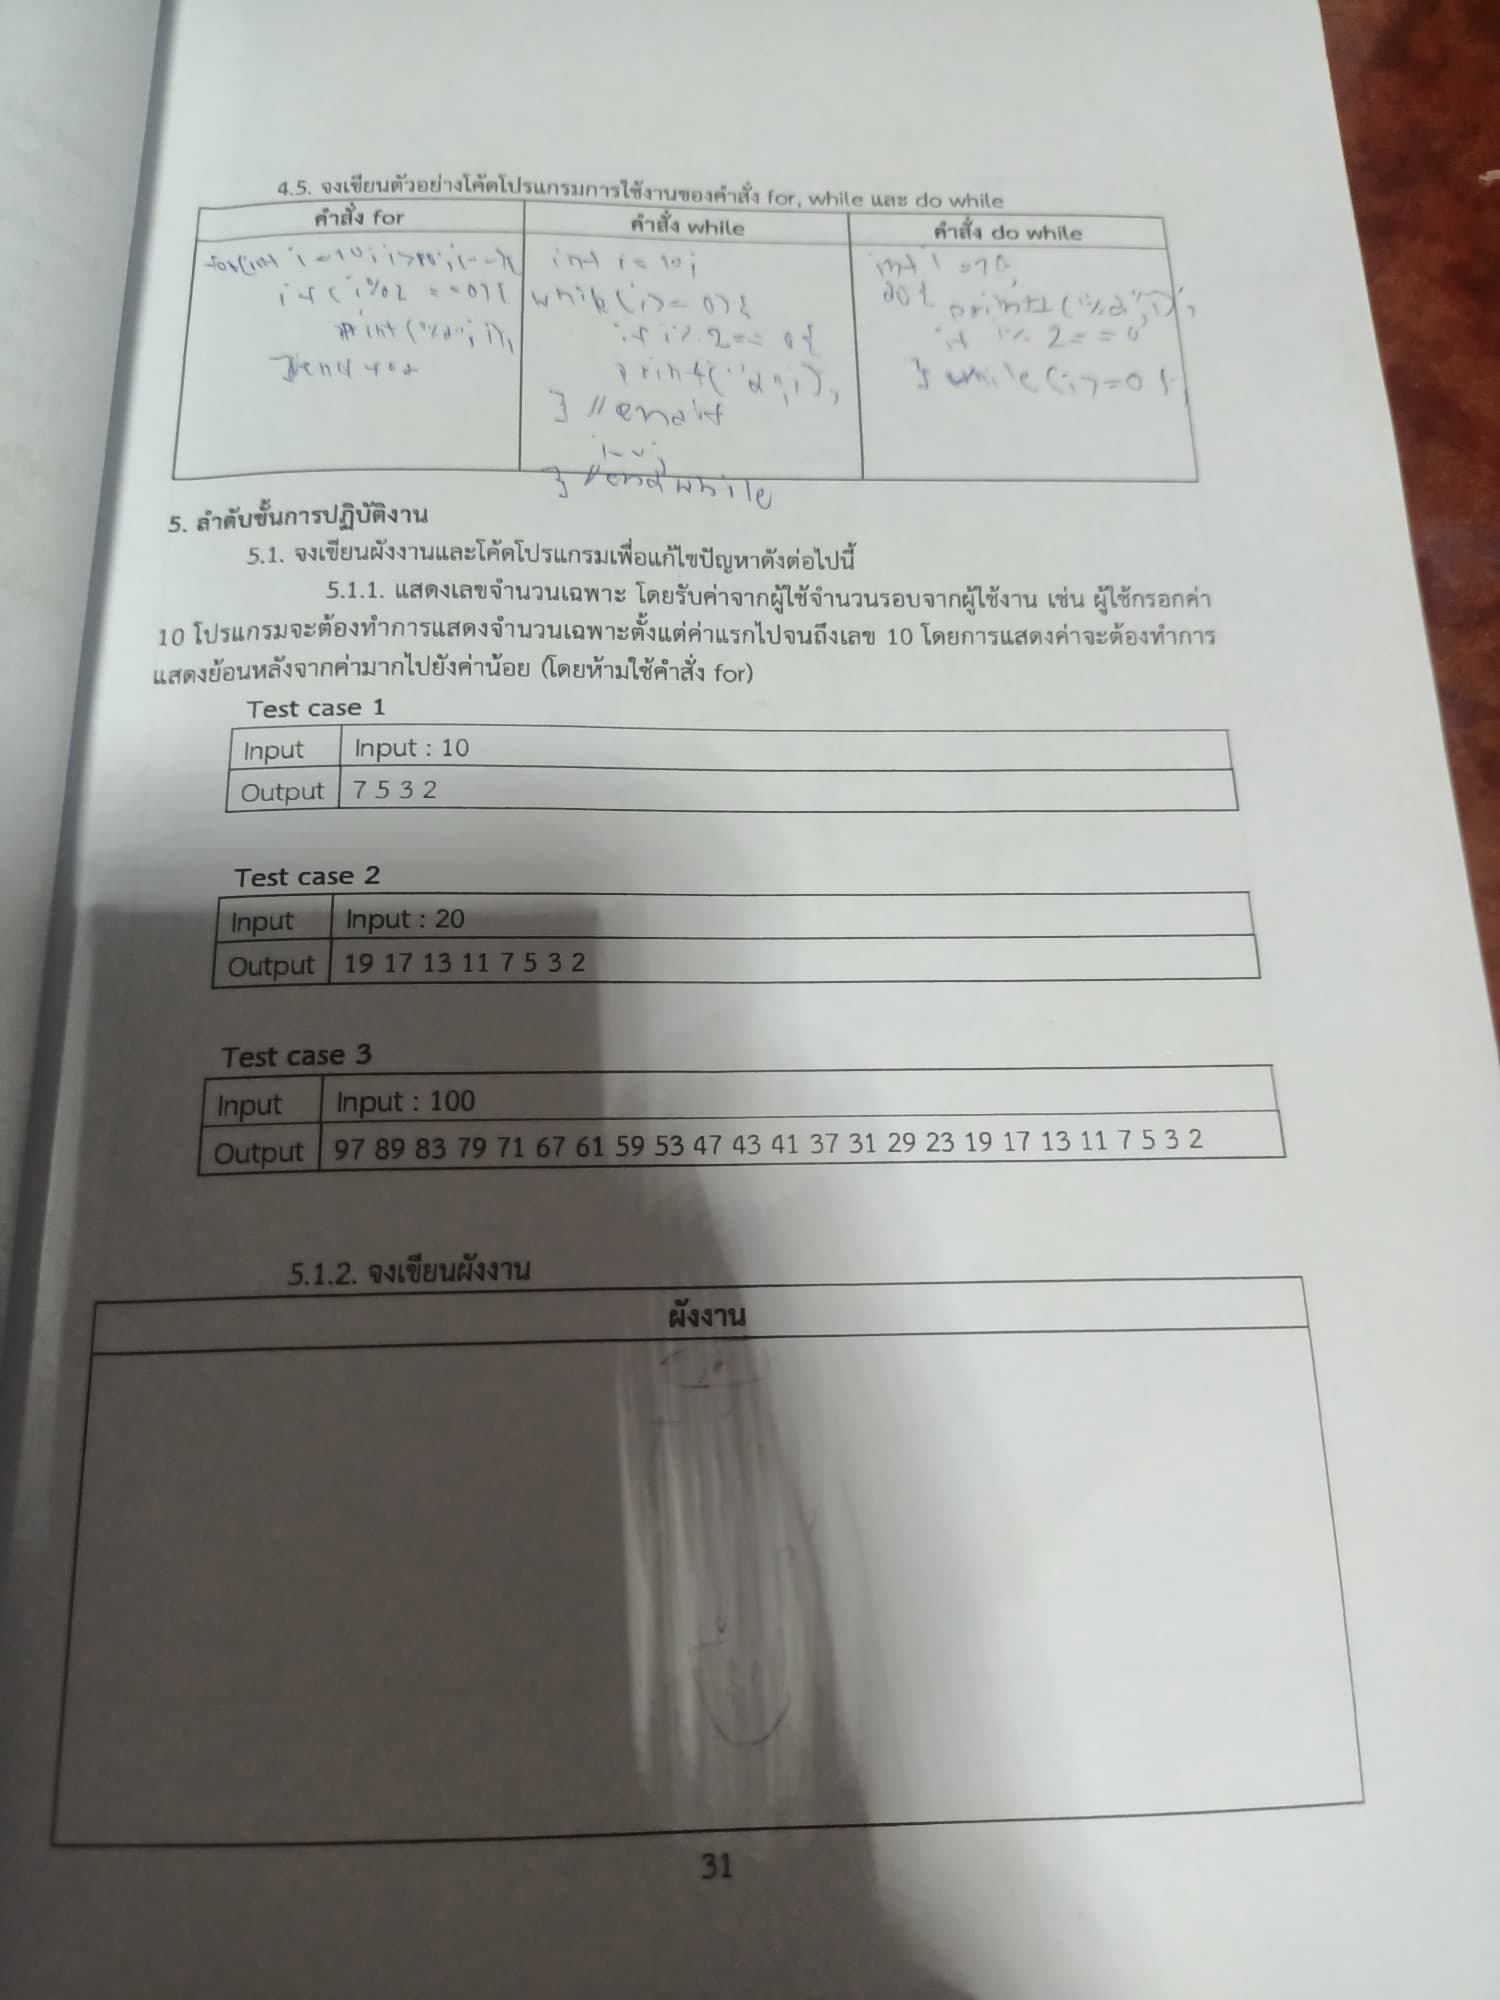 4.5. จงเขียนตัวอย่างโค้ดโปรแกรมการใช้งานของคำสั่ง for, while และ do while
คำสั่ง for
คำสั่ง while
คำสั่ง do while
for(int i=10;
if(i%2==0){
int i=10;
while(i>=0){
if i%2==0{
printf("
} //endif
i--;
} //endwhile
int i=10
do{ printf("%d",i);
if i%2==0
} while(i>=0
5. ลำดับขั้นการปฏิบัติงาน
5.1. จงเขียนผังงานและโค้ดโปรแกรมเพื่อแก้ไขปัญหาดังต่อไปนี้
5.1.1. แสดงเลขจำนวนเฉพาะ โดยรับค่าจากผู้ใช้จำนวนรอบจากผู้ใช้งาน เช่น ผู้ใช้กรอกค่า
10 โปรแกรมจะต้องทำการแสดงจำนวนเฉพาะตั้งแต่ค่าแรกไปจนถึงเลข 10 โดยการแสดงค่าจะต้องทำการ
แสดงย้อนหลังจากค่ามากไปยังค่าน้อย (โดยห้ามใช้คำสั่ง for)
Test case 1
Input Input : 10
Output 7 5 3 2
Test case 2
Input Input : 20
Output 19 17 13 11 7 5 3 2
Test case 3
Input Input : 100
Output 97 89 83 79 71 67 61 59 53 47 43 41 37 31 29 23 19 17 13 11 7 5 3 2
5.1.2. จงเขียนผังงาน
ผังงาน
31